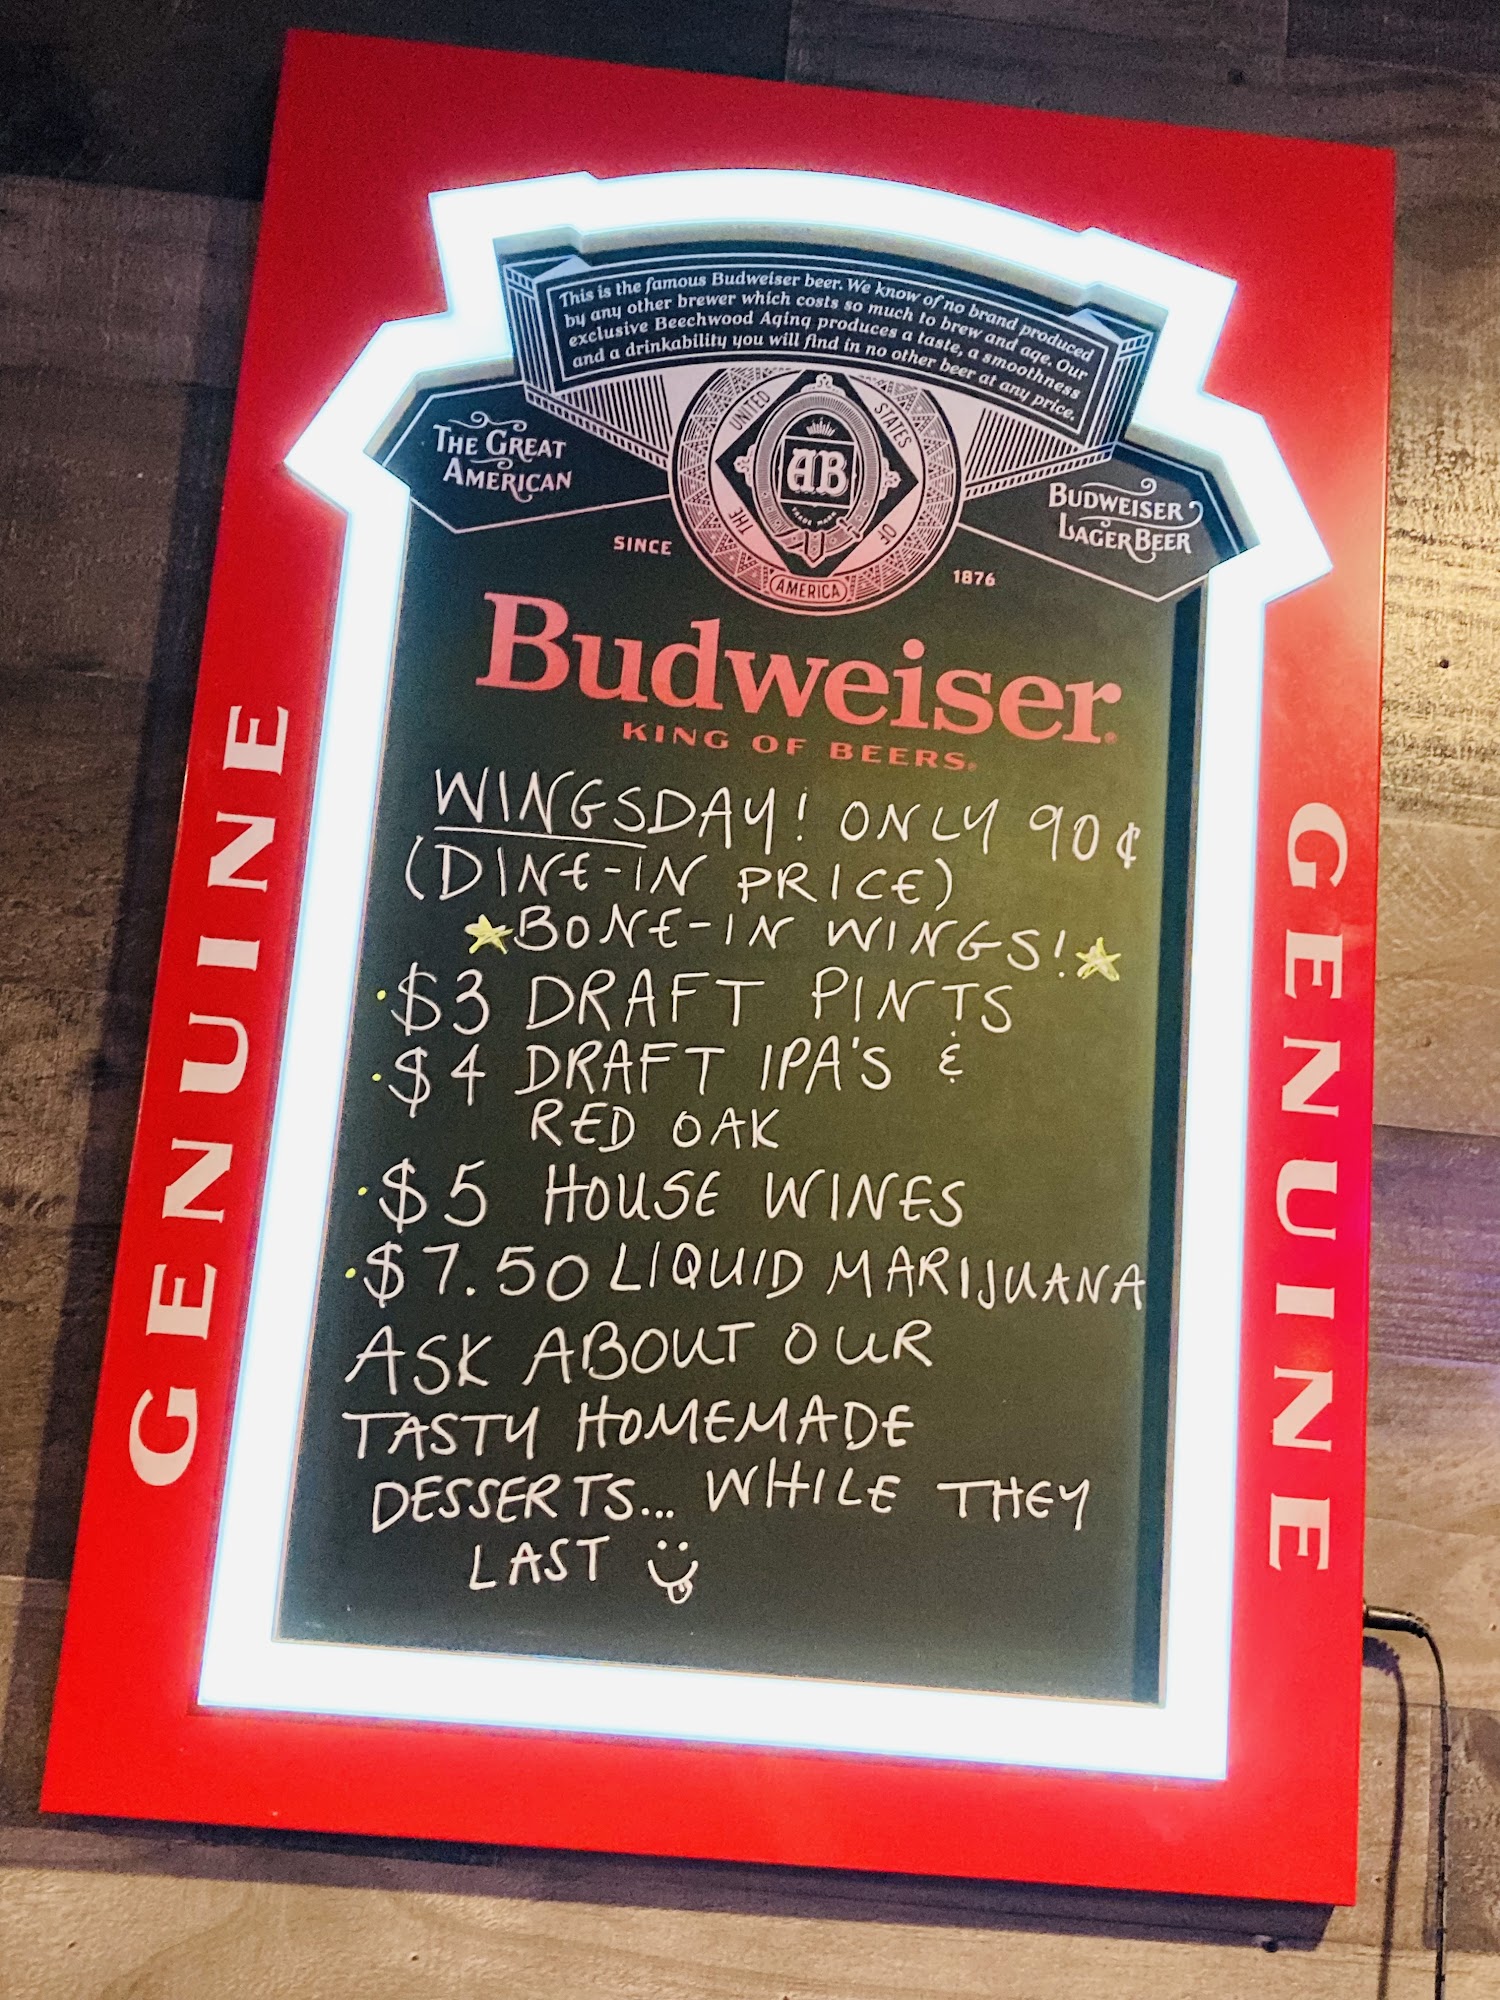 This is the famous Budweiser beer. We know of no brand produced
by any other brewer which costs so much to brew and age. Our
exclusive Beechwood Aging produces a taste, a smoothness
and a drinkability you will find in no other beer at any price.
THE GREAT
AMERICAN
BUDWEISER
LAGER BEER
UNITED
STATES
OF
THE
AMERICA
AB
TRADE MARK
SINCE
1876
Budweiser®
KING OF BEERS®
GENUINE
GENUINE
WINGSDAY! ONLY 90¢
(DINE-IN PRICE)
BONE-IN WINGS!
· $3 DRAFT PINTS
· $4 DRAFT IPA'S &
RED OAK
· $5 HOUSE WINES
· $7.50 LIQUID MARIJUANA
ASK ABOUT OUR
TASTY HOMEMADE
DESSERTS... WHILE THEY
LAST